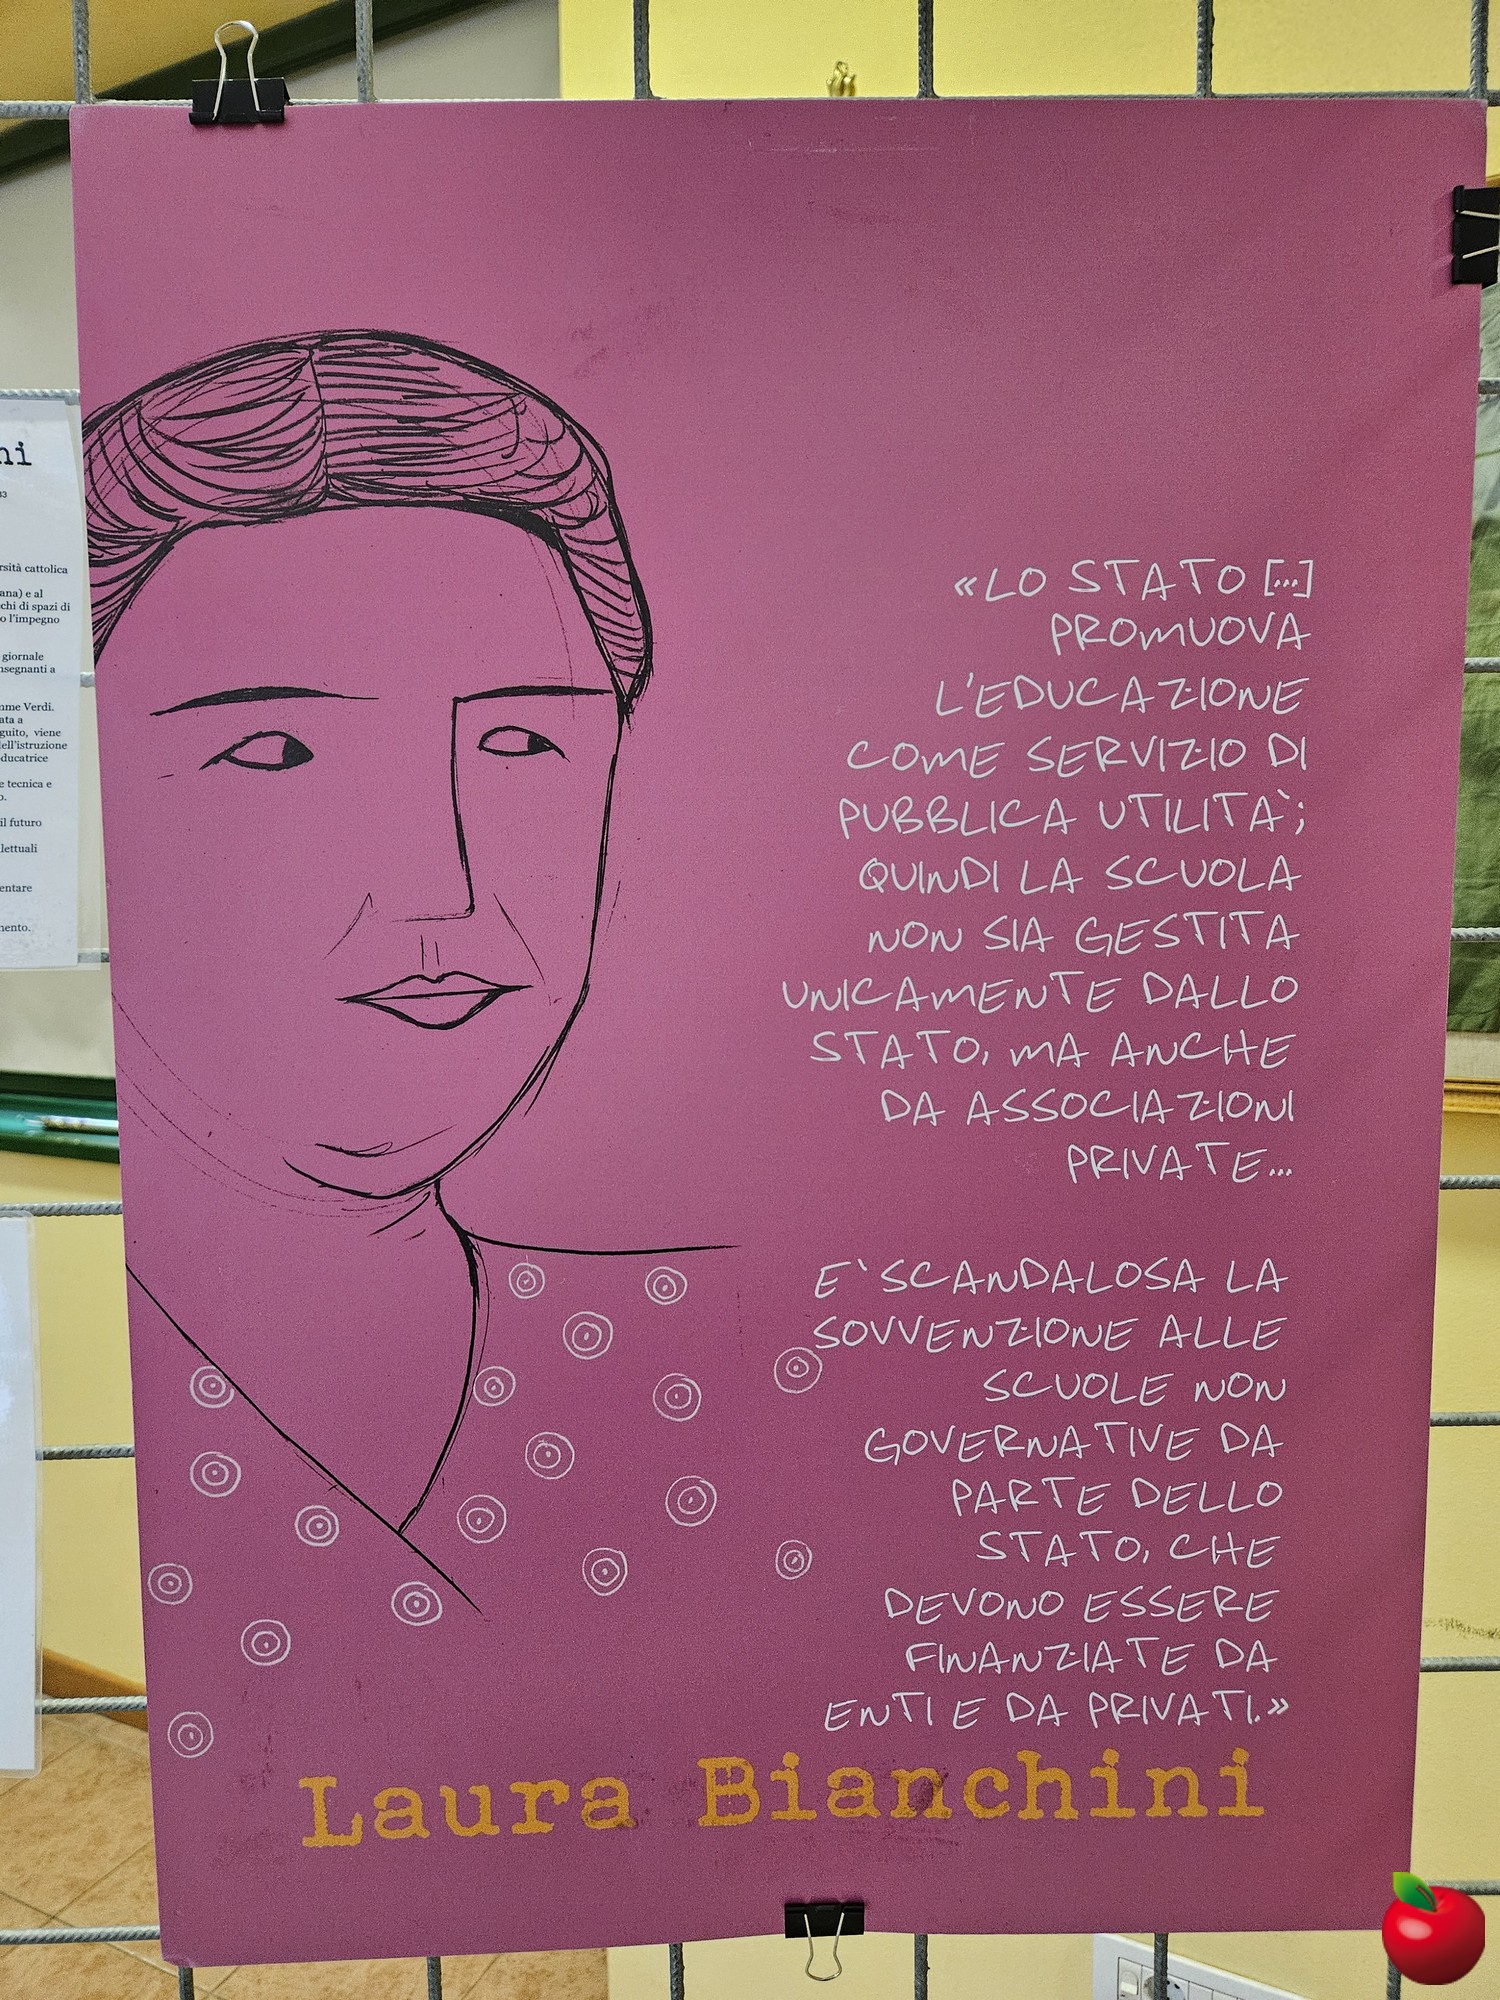 «LO STATO [...]
PROMUOVA
L'EDUCAZIONE
COME SERVIZIO DI
PUBBLICA UTILITA`;
QUINDI LA SCUOLA
NON SIA GESTITA
UNICAMENTE DALLO
STATO, MA ANCHE
DA ASSOCIAZIONI
PRIVATE...
E` SCANDALOSA LA
SOVVENZIONE ALLE
SCUOLE NON
GOVERNATIVE DA
PARTE DELLO
STATO, CHE
DEVONO ESSERE
FINANZIATE DA
ENTI E DA PRIVATI.»
Laura Bianchini
cattolica
e al
chi di spazi di
o l'impegno
giornale
a
Verdi.
a
viene
tecnica e
il futuro